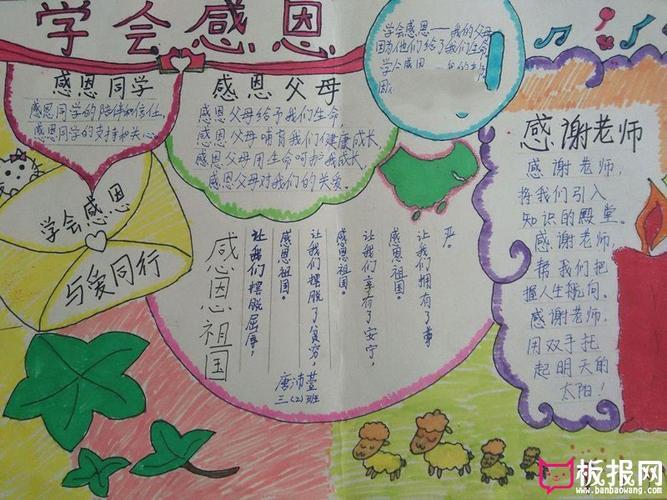 学会感恩
感恩同学
感恩同学的陪伴和信任，
感恩同学的支持和关心。
感恩父母
感恩父母给予我们生命，
感恩父母哺育我们健康成长
感恩父母用生命呵护我成长，
感恩父母对我们的关爱。
学会感恩——我的父母
因为他们给了我们生命
学会感恩
因
学会感恩
与爱同行
感恩祖国
严。
让我们拥有了尊
感恩祖国。
让我们享有了安宁，
感恩祖国。
让我们摆脱了贫穷，
感恩祖国。
让我们摆脱屈辱，
唐沛萱
三(2)班
感谢老师
感谢老师，
将我们引入
知识的殿堂。
感谢老师，
帮我们把
握人生航向。
感谢老师，
用双手托
起明天的
太阳！
板报网
www.banbaowang.com